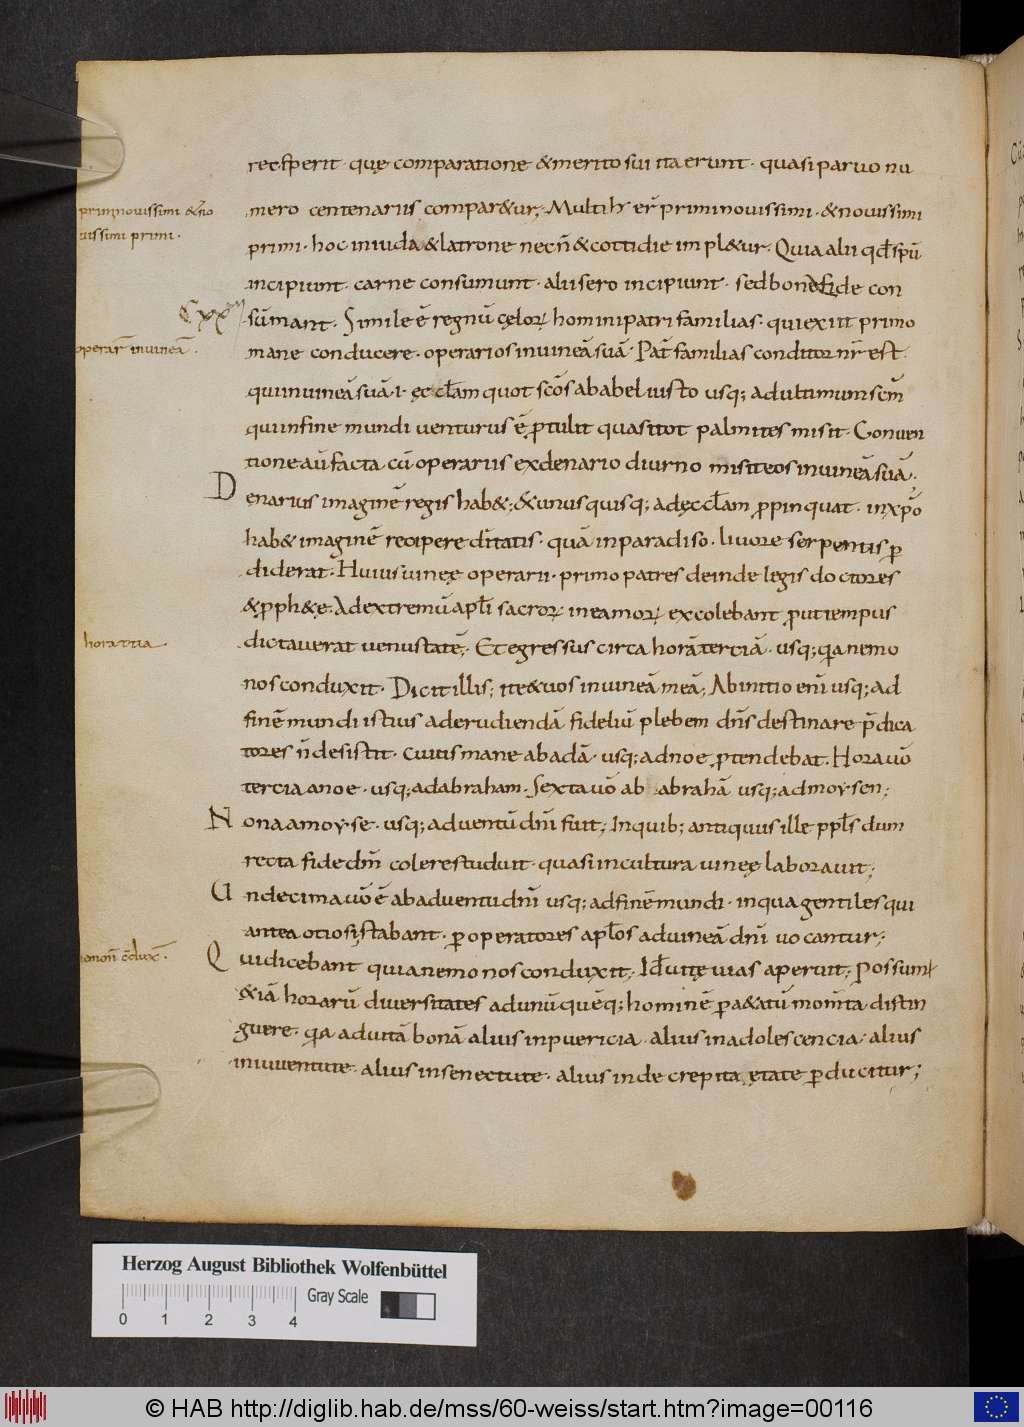 recęperit · quę comparatione & merito sui ita erunt · quasi paruo nu
primi nouissimi & no
uissimi primi ·
mero centenariis compar&ur; Multi hr̄ er̄ primi nouissimi · & nouissimi
primi · hoc in iuda & latrone necn̄ & cottidie impl&ur · Quia alii qd̄ spū
incipiunt · carne consumunt · alii sero incipiunt · sed bone fide con
CXX
sum̄ant · Simile ē regnū cęlorꝝ homini patri familias · qui exiit primo
operar̄ in uineā ·
mane conducere · operarios in uineā suā · Pat̄ familias conditor nr̄ est
qui in uineā suā · i · ęccl̄am quot sc̄os ab abel iusto usq; ad ultimum sc̄m
qui in fine mundi uenturus ē ꝓtulit quasi tot palmites misit · Conuen
tione aū facta cū operariis ex denario diurno misit eos in uineā suā ·
Denarius imaginē regis hab&; & unus quisq; ad ęccl̄am ꝓpinquat · in xp̄o
hab& imaginē recipere dn̄tatis · quā in paradiso · liuore serpentis ꝑ
diderat · Huius uineę operarii · primo patres deinde legis doctores
& ꝓph&ę · Ad extremū apl̄i sacrorꝝ in ea morꝝ excolebant ꝓut tempus
hora tertia ·
dictauerat uenustatē; Et egressus circa horā tertiā · usq; q̄a nemo
nos conduxit · Dicit illis; ite & uos in uineā meā; Ab initio enī usq; ad
finē mundi istius ad erudiendā fideliū plebem dn̄s destinare p̄dica
tores n̄ desistit · cuius mane ab adā · usq; ad noe ꝓtendebat · Hora uō
tercia a noe · usq; ad abraham · Sexta uō ab abrahā usq; ad moysen;
Nona a moyse · usq; aduentū dn̄i fuit; In quib; antiquus ille ppl̄s dum
recta fide dn̄m colere studuit · quasi in cultura uineę laborauit;
Undecima uō ē ab aduentu dn̄i usq; ad finē mundi · in qua gentiles qui
antea otiosi stabant · ꝑ operatores apl̄os ad uineā dn̄i uocantur;
Qui dicebant quia nemo nos conduxit; Id ē uitę uias aperuit; Possum
&iā horarū diuersitates ad unū quēq; hominē ꝑ a&atū mom̄ta distin
guere · q̄a ad uitā bonā alius in puericia · alius in adolescencia · alius
in iuuentute · alius in senectute · alius in decrepita ętate ꝑducitur;
Herzog August Bibliothek Wolfenbüttel
Gray Scale
0 1 2 3 4
© HAB http://diglib.hab.de/mss/60-weiss/start.htm?image=00116